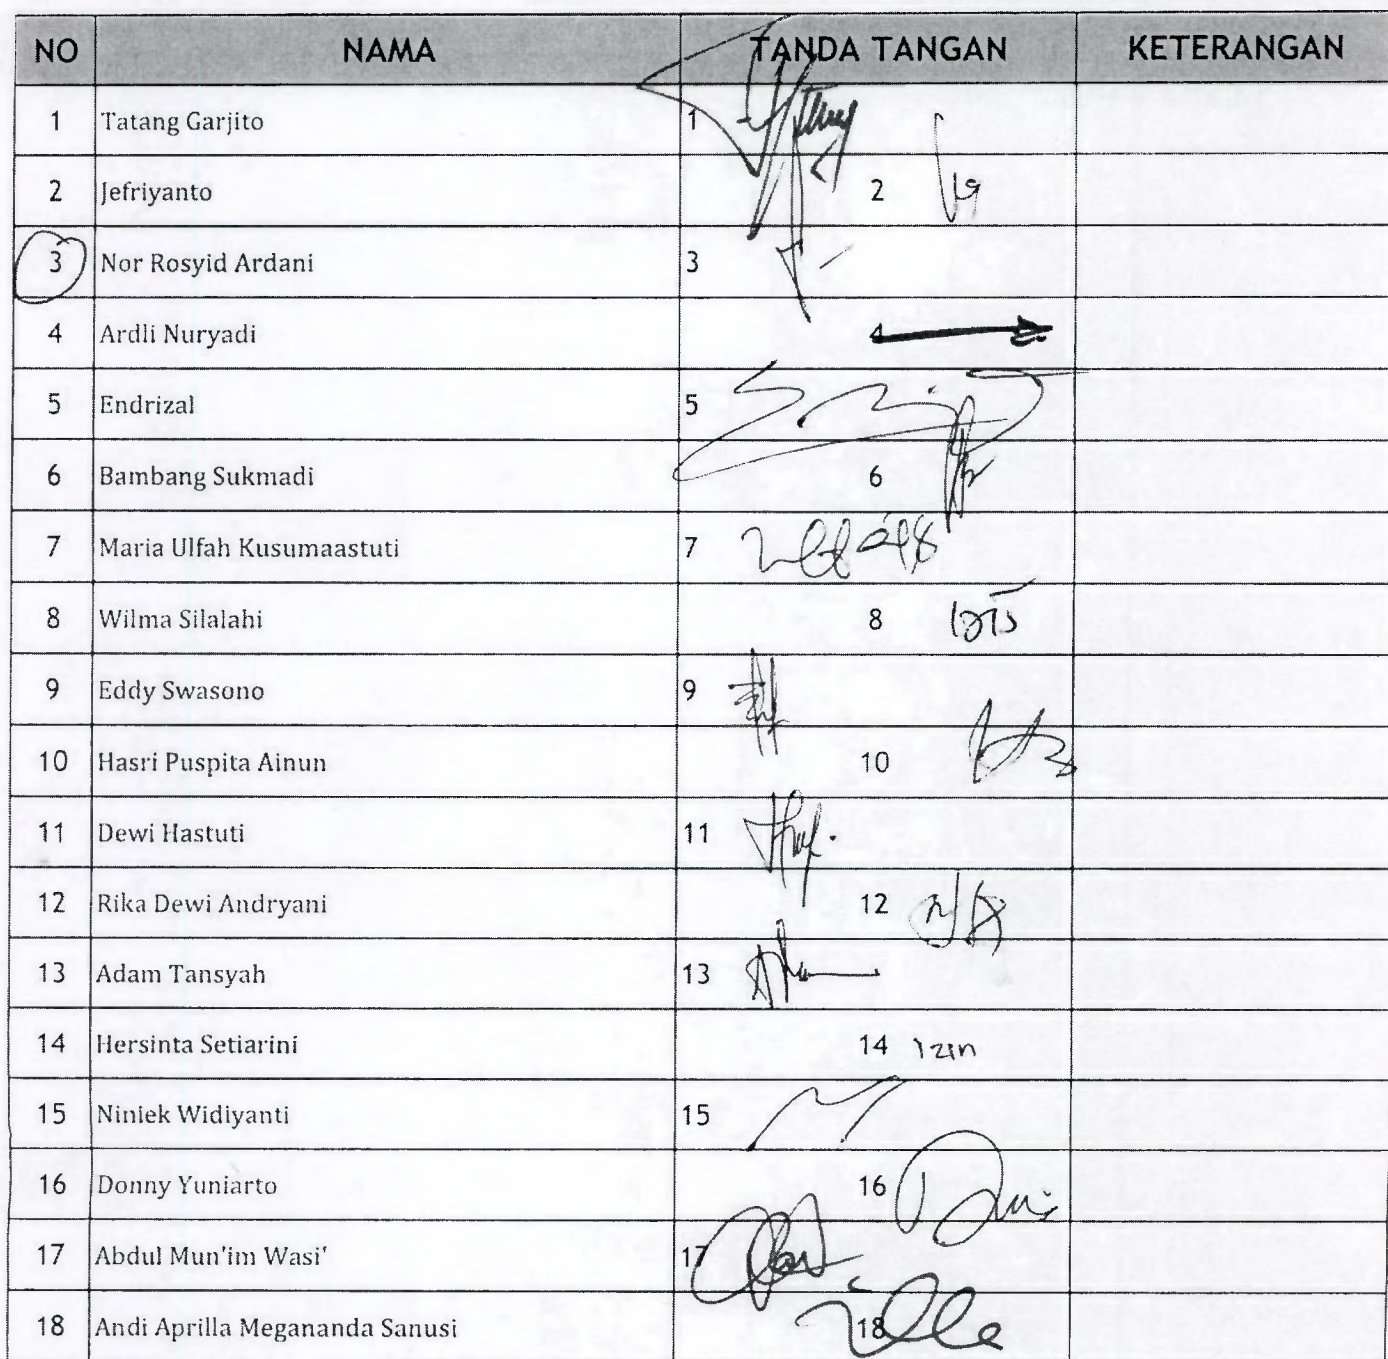 NO NAMA TANDA TANGAN KETERANGAN
1 Tatang Garjito 1
2 Jefriyanto 2
3 Nor Rosyid Ardani 3
4 Ardli Nuryadi 4
5 Endrizal 5
6 Bambang Sukmadi 6
7 Maria Ulfah Kusumaastuti 7
8 Wilma Silalahi 8
9 Eddy Swasono 9
10 Hasri Puspita Ainun 10
11 Dewi Hastuti 11
12 Rika Dewi Andryani 12
13 Adam Tansyah 13
14 Hersinta Setiarini 14 Izin
15 Niniek Widiyanti 15
16 Donny Yuniarto 16
17 Abdul Mun'im Wasi' 17
18 Andi Aprilla Megananda Sanusi 18